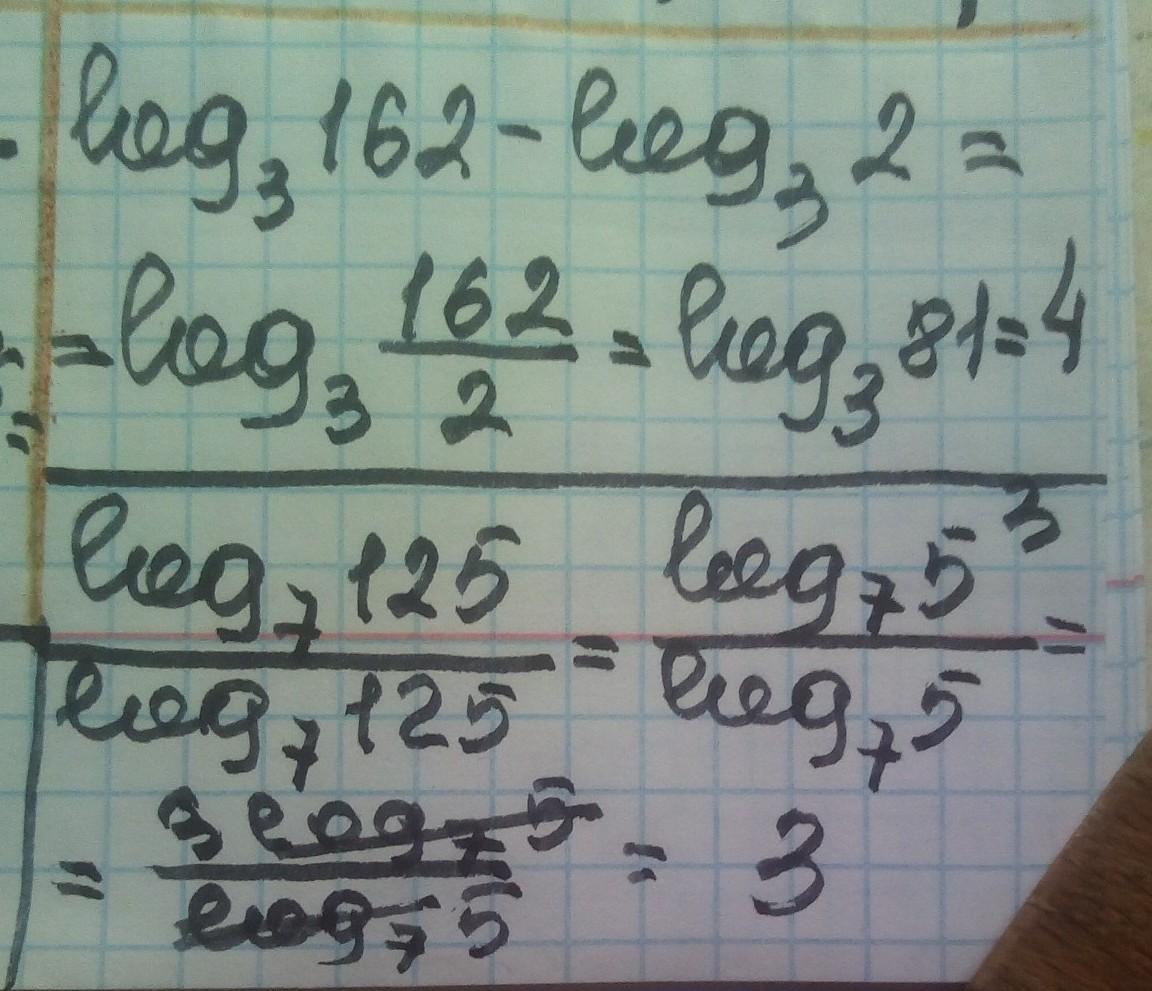 log₃ 162 - log₃ 2 =
= log₃ 162/2 = log₃ 81 = 4
log₇ 125 / log₇ 125 = log₇ 5³ / log₇ 5 =
= 3 log₇ 5 / log₇ 5 = 3